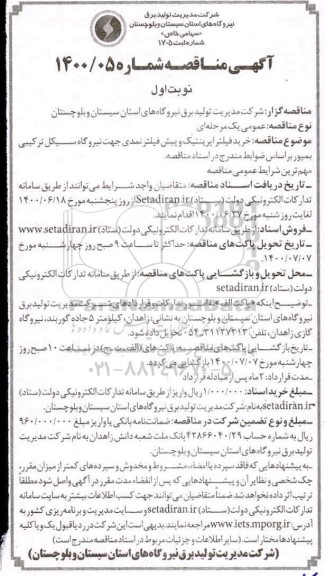 شرکت مدیریت تولید برق
نیروگاه‌های استان سیستان و بلوچستان
«سهامی خاص»
شماره ثبت ۱۷۰۵
آگهـی مناقـصه شمـاره ۱۴۰۰/۰۵
نوبت اول
مناقصه گزار: شرکت مدیریت تولید برق نیروگاه‌های استان سیستان و بلوچستان
نوع مناقصه: عمومی یک مرحله‌ای
موضوع مناقصه: خرید فیلتر اپرینتیک و پیش فیلتر نمدی جهت نیروگاه سیکل ترکیبی
بمپور براساس ضوابط مندرج در اسناد مناقصه.
مهم‌ترین شرایط عمومی مناقصه
ـ تاریخ دریافت اسناد مناقصه: متقاضیان واجد شرایط می‌توانند از طریق سامانه
تدارکات الکترونیکی دولت (ستاد) Setadiran.ir از روز پنجشنبه مورخ ۱۴۰۰/۰۶/۱۸
لغایت روز شنبه مورخ ۱۴۰۰/۰۶/۲۷ اقدام نمایند.
ـ فروش اسناد: از طریق سامانه تدارکات الکترونیکی دولت (ستاد) www.setadiran.ir
ـ تاریخ تحویل پاکت‌های مناقصه: حداکثر تا ساعت ۹ صبح روز چهارشنبه مورخ
۱۴۰۰/۰۷/۰۷
ـ محل تحویل و بازگشایی پاکت‌های مناقصه: از طریق سامانه تدارکات الکترونیکی
دولت (ستاد) setadiran.ir
ـ توضیح اینکه «پاکت الف» به دبیر تدارکات و قراردادهای شرکت مدیریت تولید برق
نیروگاه‌های استان سیستان و بلوچستان به نشانی زاهدان، کیلومتر ۵ جاده گوربند، نیروگاه
گازی زاهدان، تلفن: ۳۱۱۳۷۳۱۳ـ۰۵۴ تحویل داده شود.
ـ تاریخ بازگشایی پاکت‌های مناقصه به پاکت‌های (الف، ب، ج) در ساعت ۱۰ صبح روز
چهارشنبه مورخ ۱۴۰۰/۰۷/۰۷ بازگشایی می‌گردد.
ـ مدت قرارداد: ۲ ماه پس از مبادله قرارداد
ـ مبلغ خرید اسناد: ۱/۰۰۰/۰۰۰ ریال واریز از طریق سامانه تدارکات الکترونیکی دولت (ستاد)
setadiran.ir به نام شرکت مدیریت تولید برق نیروگاه‌های استان سیستان و بلوچستان.
ـ مبلغ و نوع تضمین شرکت در مناقصه: ضمانت‌نامه بانکی یا واریز مبلغ ۹۶۰/۰۰۰/۰۰۰
ریال به شماره حساب ۴۳۸۶۶۰۴۰/۲۹ بانک ملت شعبه دانش زاهدان به نام شرکت مدیریت
تولید برق نیروگاه‌های استان سیستان و بلوچستان.
به پیشنهادهایی که فاقد سپرده یا امضاء، مشروط و مخدوش و سپرده‌های کمتر از میزان مقرر،
چک شخصی و نظایر آن و پیشنهادهایی که پس از انقضاء مدت مقرر در آگهی واصل شود مطلقاً
ترتیب اثر داده نخواهد شد ضمناً متقاضیان می‌توانند جهت کسب اطلاعات بیشتر به سایت سامانه
تدارکات الکترونیکی دولت (ستاد) setadiran.ir و سایت مدیریت و برنامه‌ریزی کشور به
آدرس: www.iets.mporg.ir مراجعه نمایند. بدیهی است این شرکت در رد یا قبول یک و یا کلیه
پیشنهادها مختار است. (سایر اطلاعات و جزئیات مربوط در اسناد مناقصه مندرج است)
(شرکت مدیریت تولید برق نیروگاه‌های استان سیستان و بلوچستان)